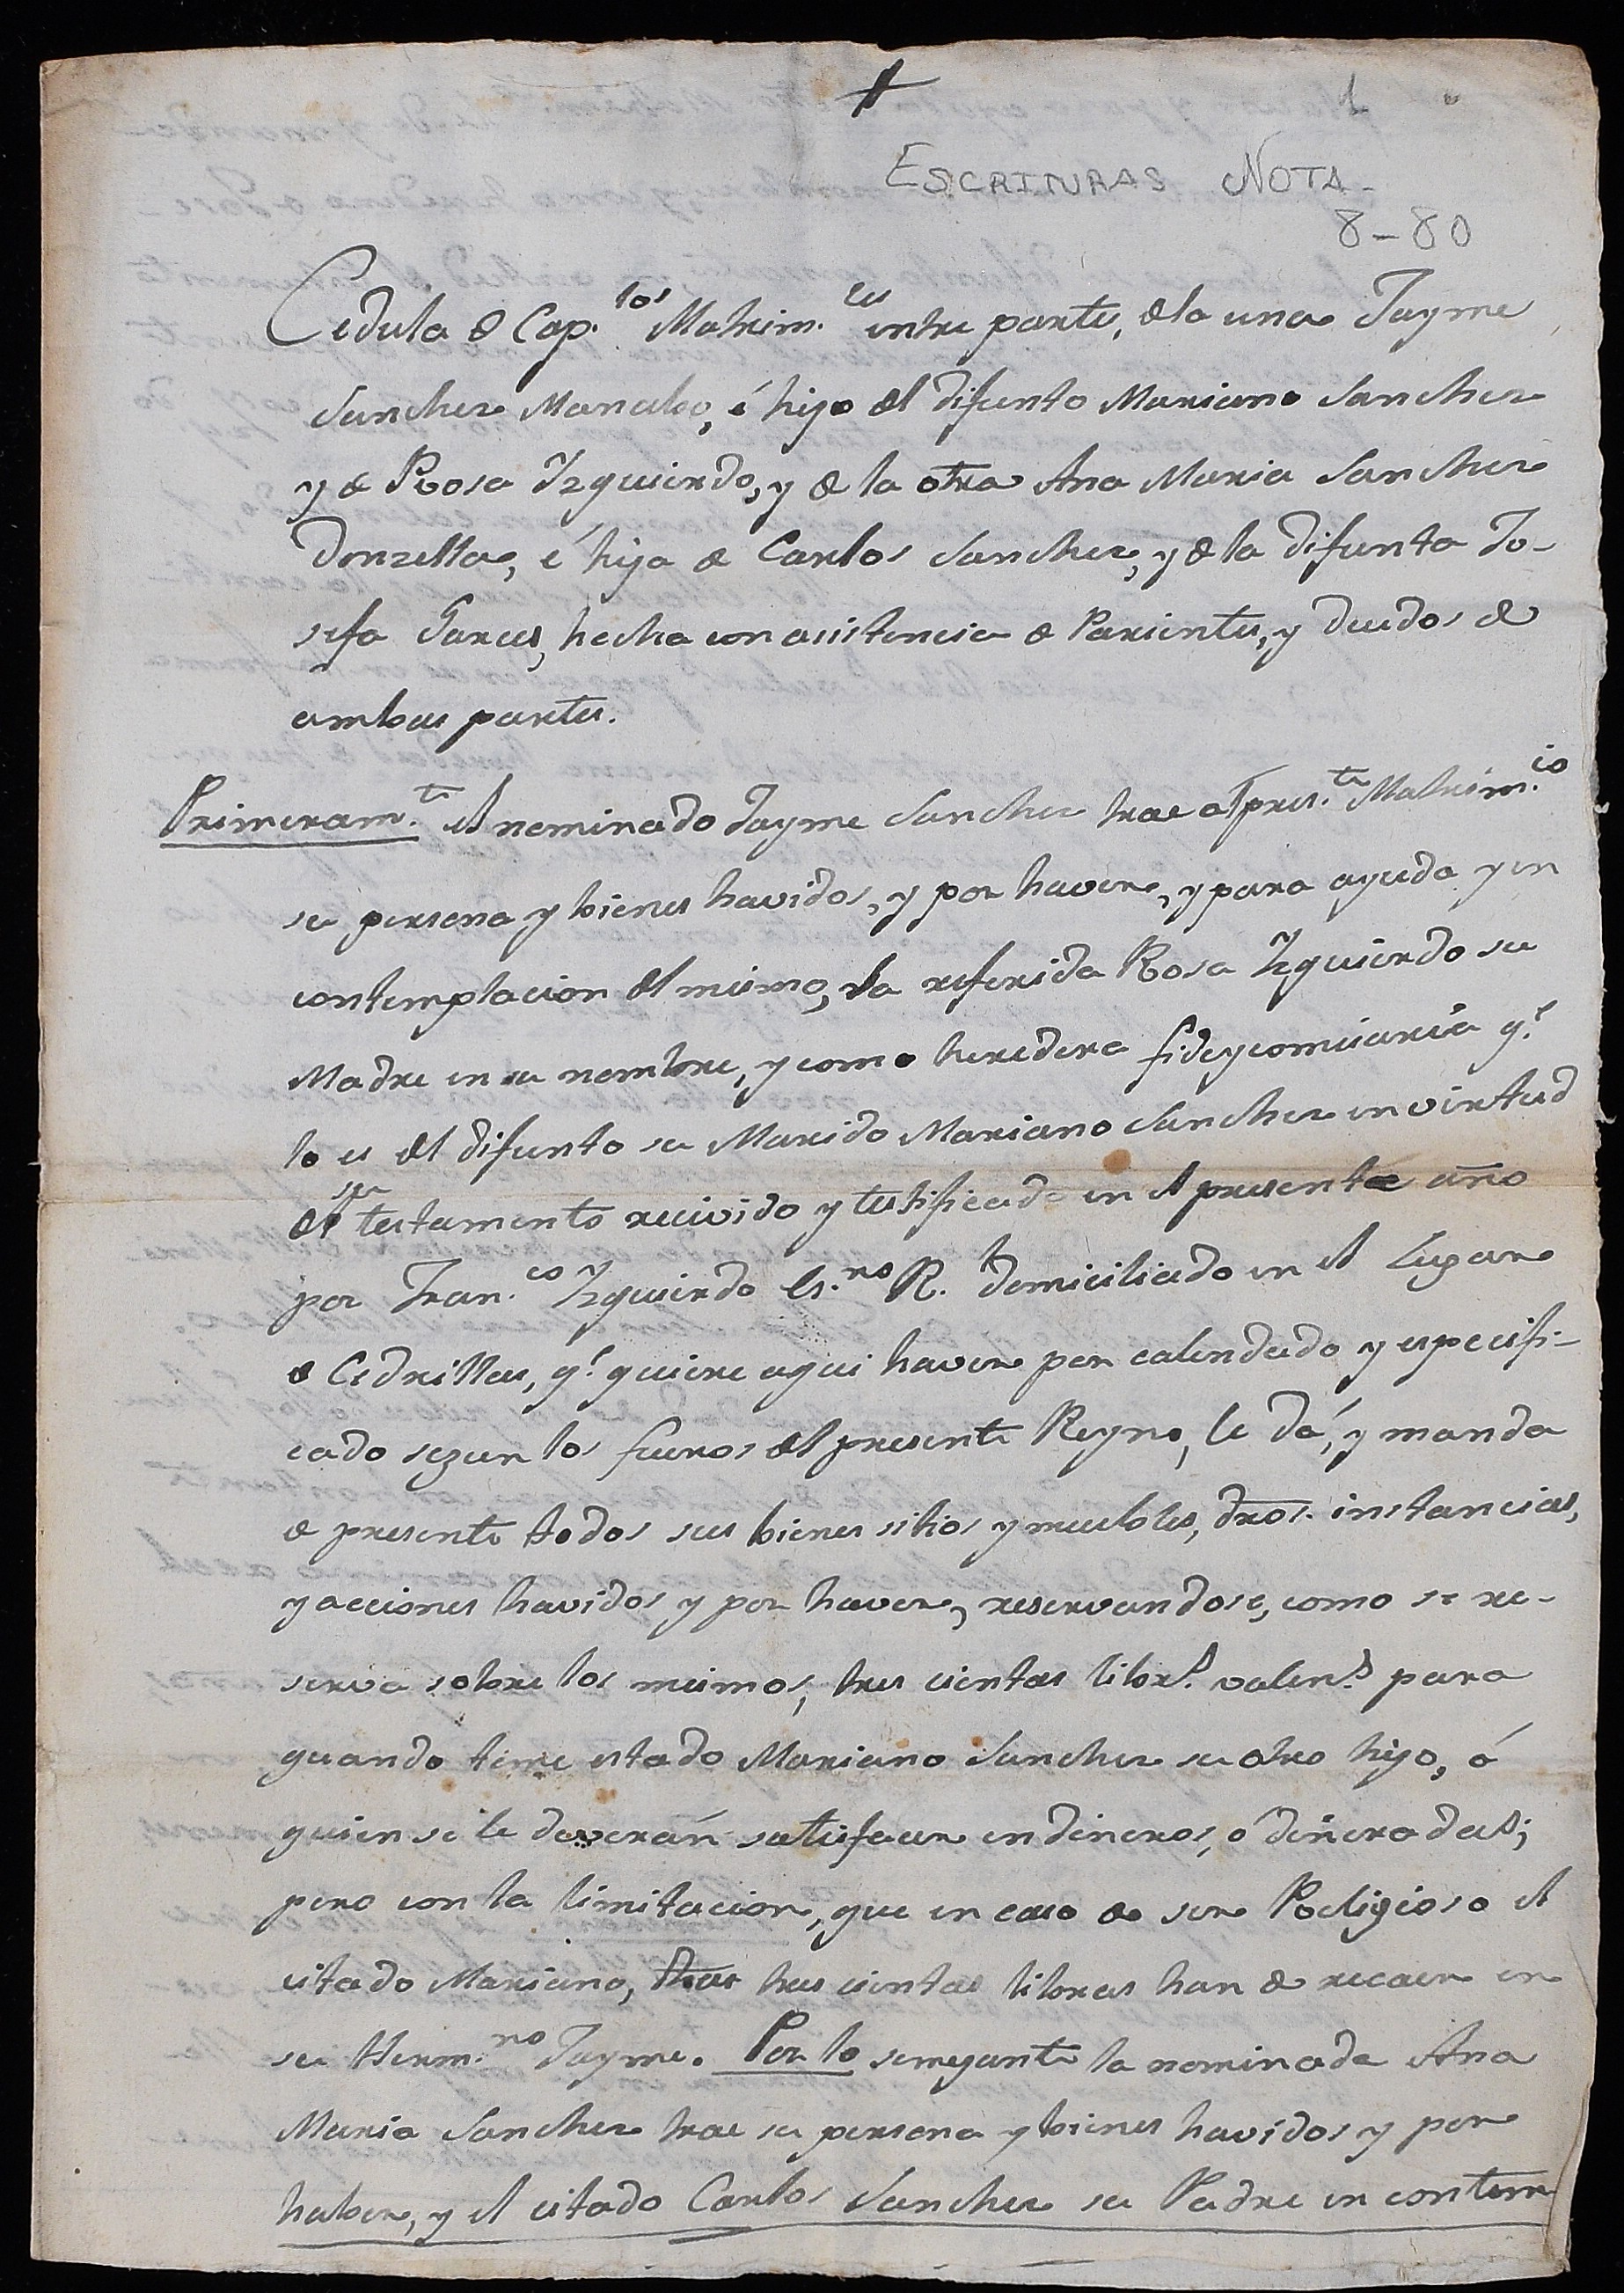 1
ESCRITURAS NOTA-
8-80
Cedula de Cap.los Matrim.les entre partes, de la una Jayme
Sanchez Mancebo, é hijo del difunto Mariano Sanchez
y de Rosa Izquierdo, y de la otra Ana Maria Sanchez
Donzella, é hija de Carlos Sanchez, y de la difunta Jo-
sefa Garces, hecha con asistencia de Parientes, y deudos de
ambas partes.
Primeram.te el nominado Jayme Sanchez trae al pres.te Matrim.io
su persona y bienes havidos, y por haver, y para ayuda y en
contemplacion del mismo, la referida Rosa Izquierdo su
Madre en su nombre, y como heredera fideycomisaria q.e
lo es del difunto su Marido Mariano Sanchez en virtud
del su testamento recivido y testificado en el presente año
por Fran.co Izquierdo Es.no R. domiciliado en el Lugar
de Cedrillas, q.e quiere aqui haver por calendado y especifi-
cado segun los fueros del presente Reyno, le dá, y manda
de presente todos sus bienes sitios y muebles, dros. instancias,
y acciones havidos y por haver, reservandose, como se re-
serva sobre los mismos, tres cientas libr.s valen.s para
quando tome estado Mariano Sanchez su otro hijo, á
quien se le deverán satisfacer en dineros, ó dineradas;
pero con la limitacion, que en caso de ser Religioso el
citado Mariano, tres cientas libras han de recaer en
su Herm.no Jayme. Por lo semejante la nominada Ana
Maria Sanchez trae su persona y bienes havidos y por
haber, y el citado Carlos Sanchez su Padre en contem